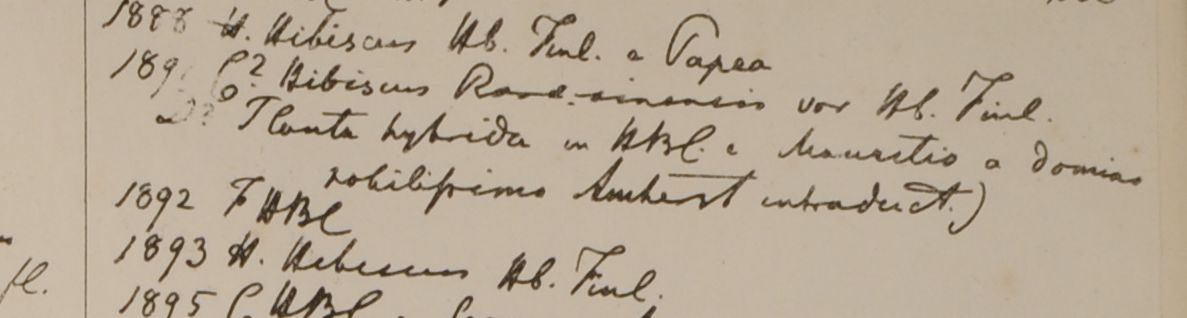 1888 H. Hibiscus Hb. Finl. e Papea
189 C? Hibiscus Rosa-sinensis var Hb. Finl.
D? Planta hybrida in HBC. e Mauritio a domino
nobilissimo Amherst introduct.)
1892 F HBC
1893 H. Hibiscus Hb. Finl.
1895 HBC
fl.